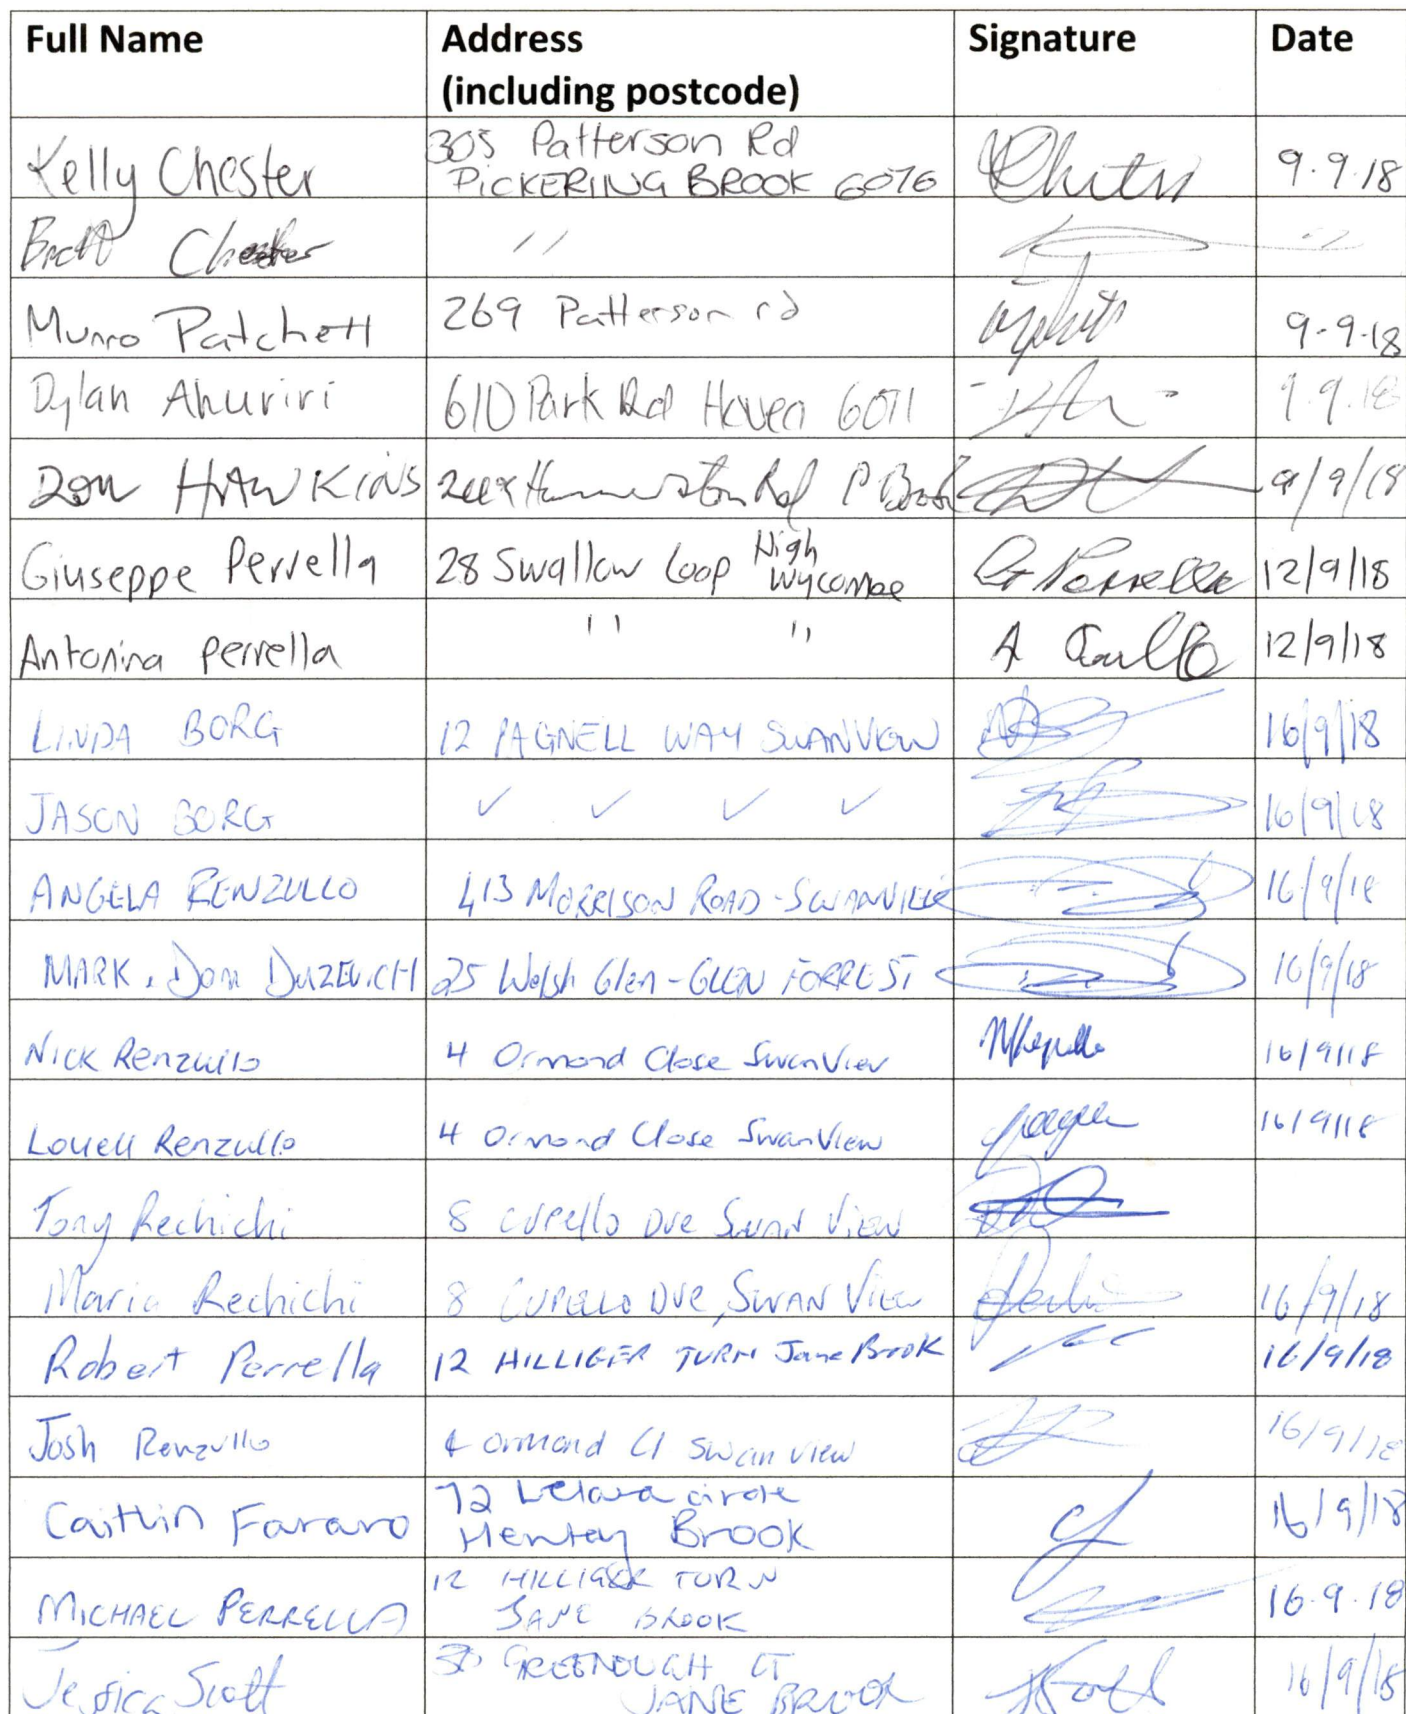 Full Name Address Signature Date
(including postcode)
Kelly Chester 305 Patterson Rd 9.9.18
PICKERING BROOK 6076
Brett Chester " "
Munro Patchett 269 Patterson rd 9-9-18
Dylan Ahuriri 610 Park Rd Hovea 6071 9.9.18
Don HAWKINS Rd P Brook 9/9/18
Giuseppe Perrella 28 Swallow Loop High Wycombe G Perrella 12/9/18
Antonina Perrella " " 12/9/18
LINDA BORG 12 PAGNELL WAY SWANVIEW 16/9/18
JASON BORG ✓ ✓ ✓ ✓ 16/9/18
ANGELA RENZULLO 413 MORRISON ROAD - SWANVIEW 16/9/18
MARK . Dom DUZEVICH 25 Welsh Glen - GLEN FORREST 16/9/18
NICK Renzullo 4 Ormond Close SwanView 16/9/18
Renzullo 4 Ormond Close SwanView 16/9/18
Tony Rechichi 8 CUPELLO DVE SWAN VIEW
Maria Rechichi 8 CUPELLO DVE, SWAN VIEW 16/9/18
Robert Perrella 12 HILLIGER TURN Jane Brook 16/9/18
Josh Renzullo 4 ormond Cl Swan view 16/9/18
Caitlin Fararo 72 circle 16/9/18
Henley Brook
MICHAEL PERRELLA 12 HILLIGER TURN 16.9.18
JANE BROOK
Jessica Scott GREENOUGH CT 16/9/18
JANE BROOK